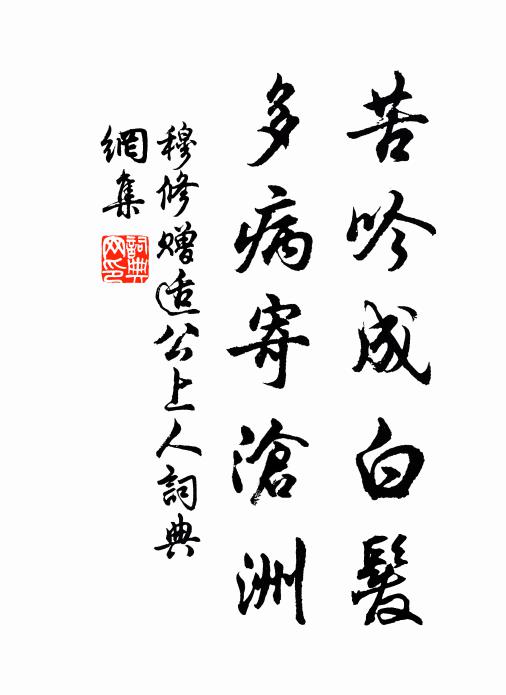 苦吟成白髮
多病寄滄洲
穆修贈适公上人詞典
網集
詞典网印